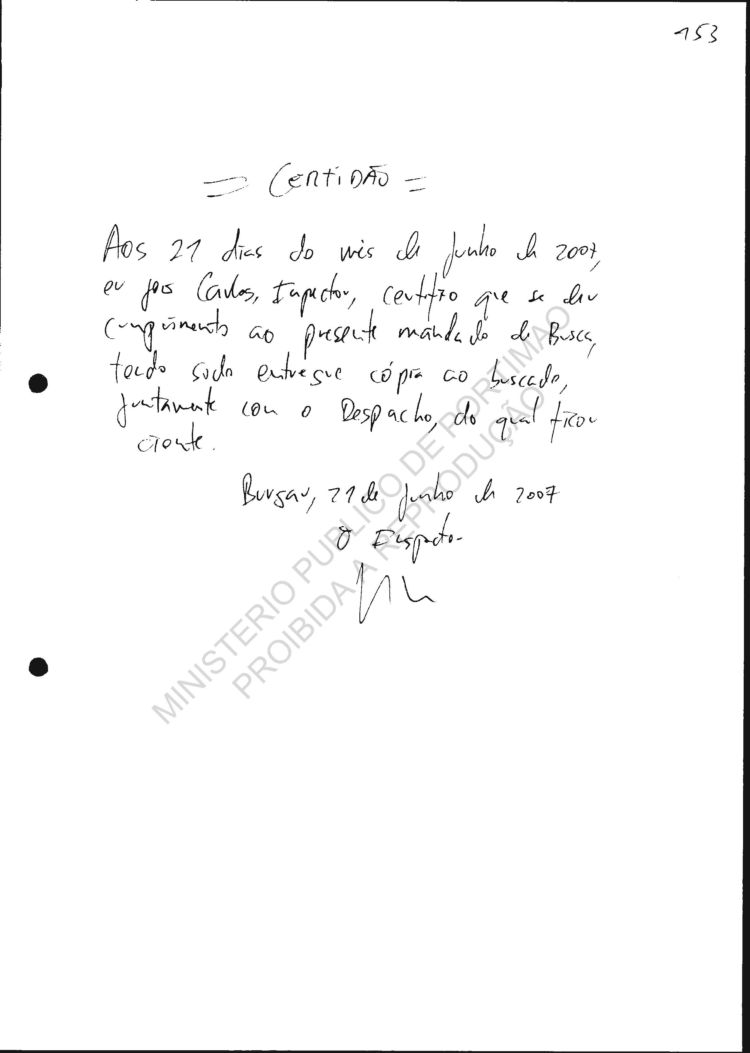 153
= CERTIDÃO =
Aos 21 dias do mês de Junho de 2007,
eu Carlos, Inspector, certifico que se deu
cumprimento ao presente mandado de Busca,
tendo sido entregue cópia ao buscado,
juntamente com o Despacho, do qual ficou
ciente.
Burgau, 21 de Junho de 2007
O Inspector
MINISTERIO PUBLICO DE PORTIMAO
PROIBIDA A REPRODUÇÃO